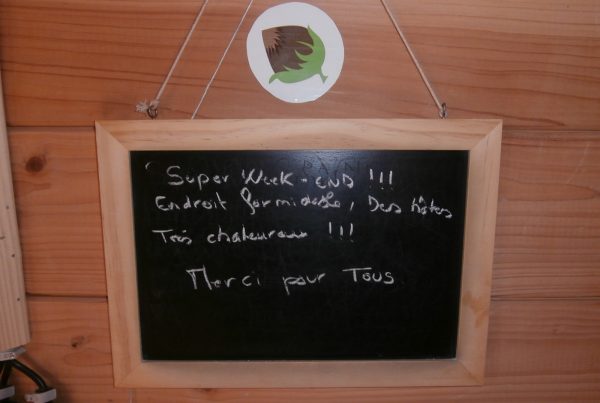 Super Week-END !!!
Endroit formidable, Des hôtes
Très chaleureux !!!
Merci pour Tous